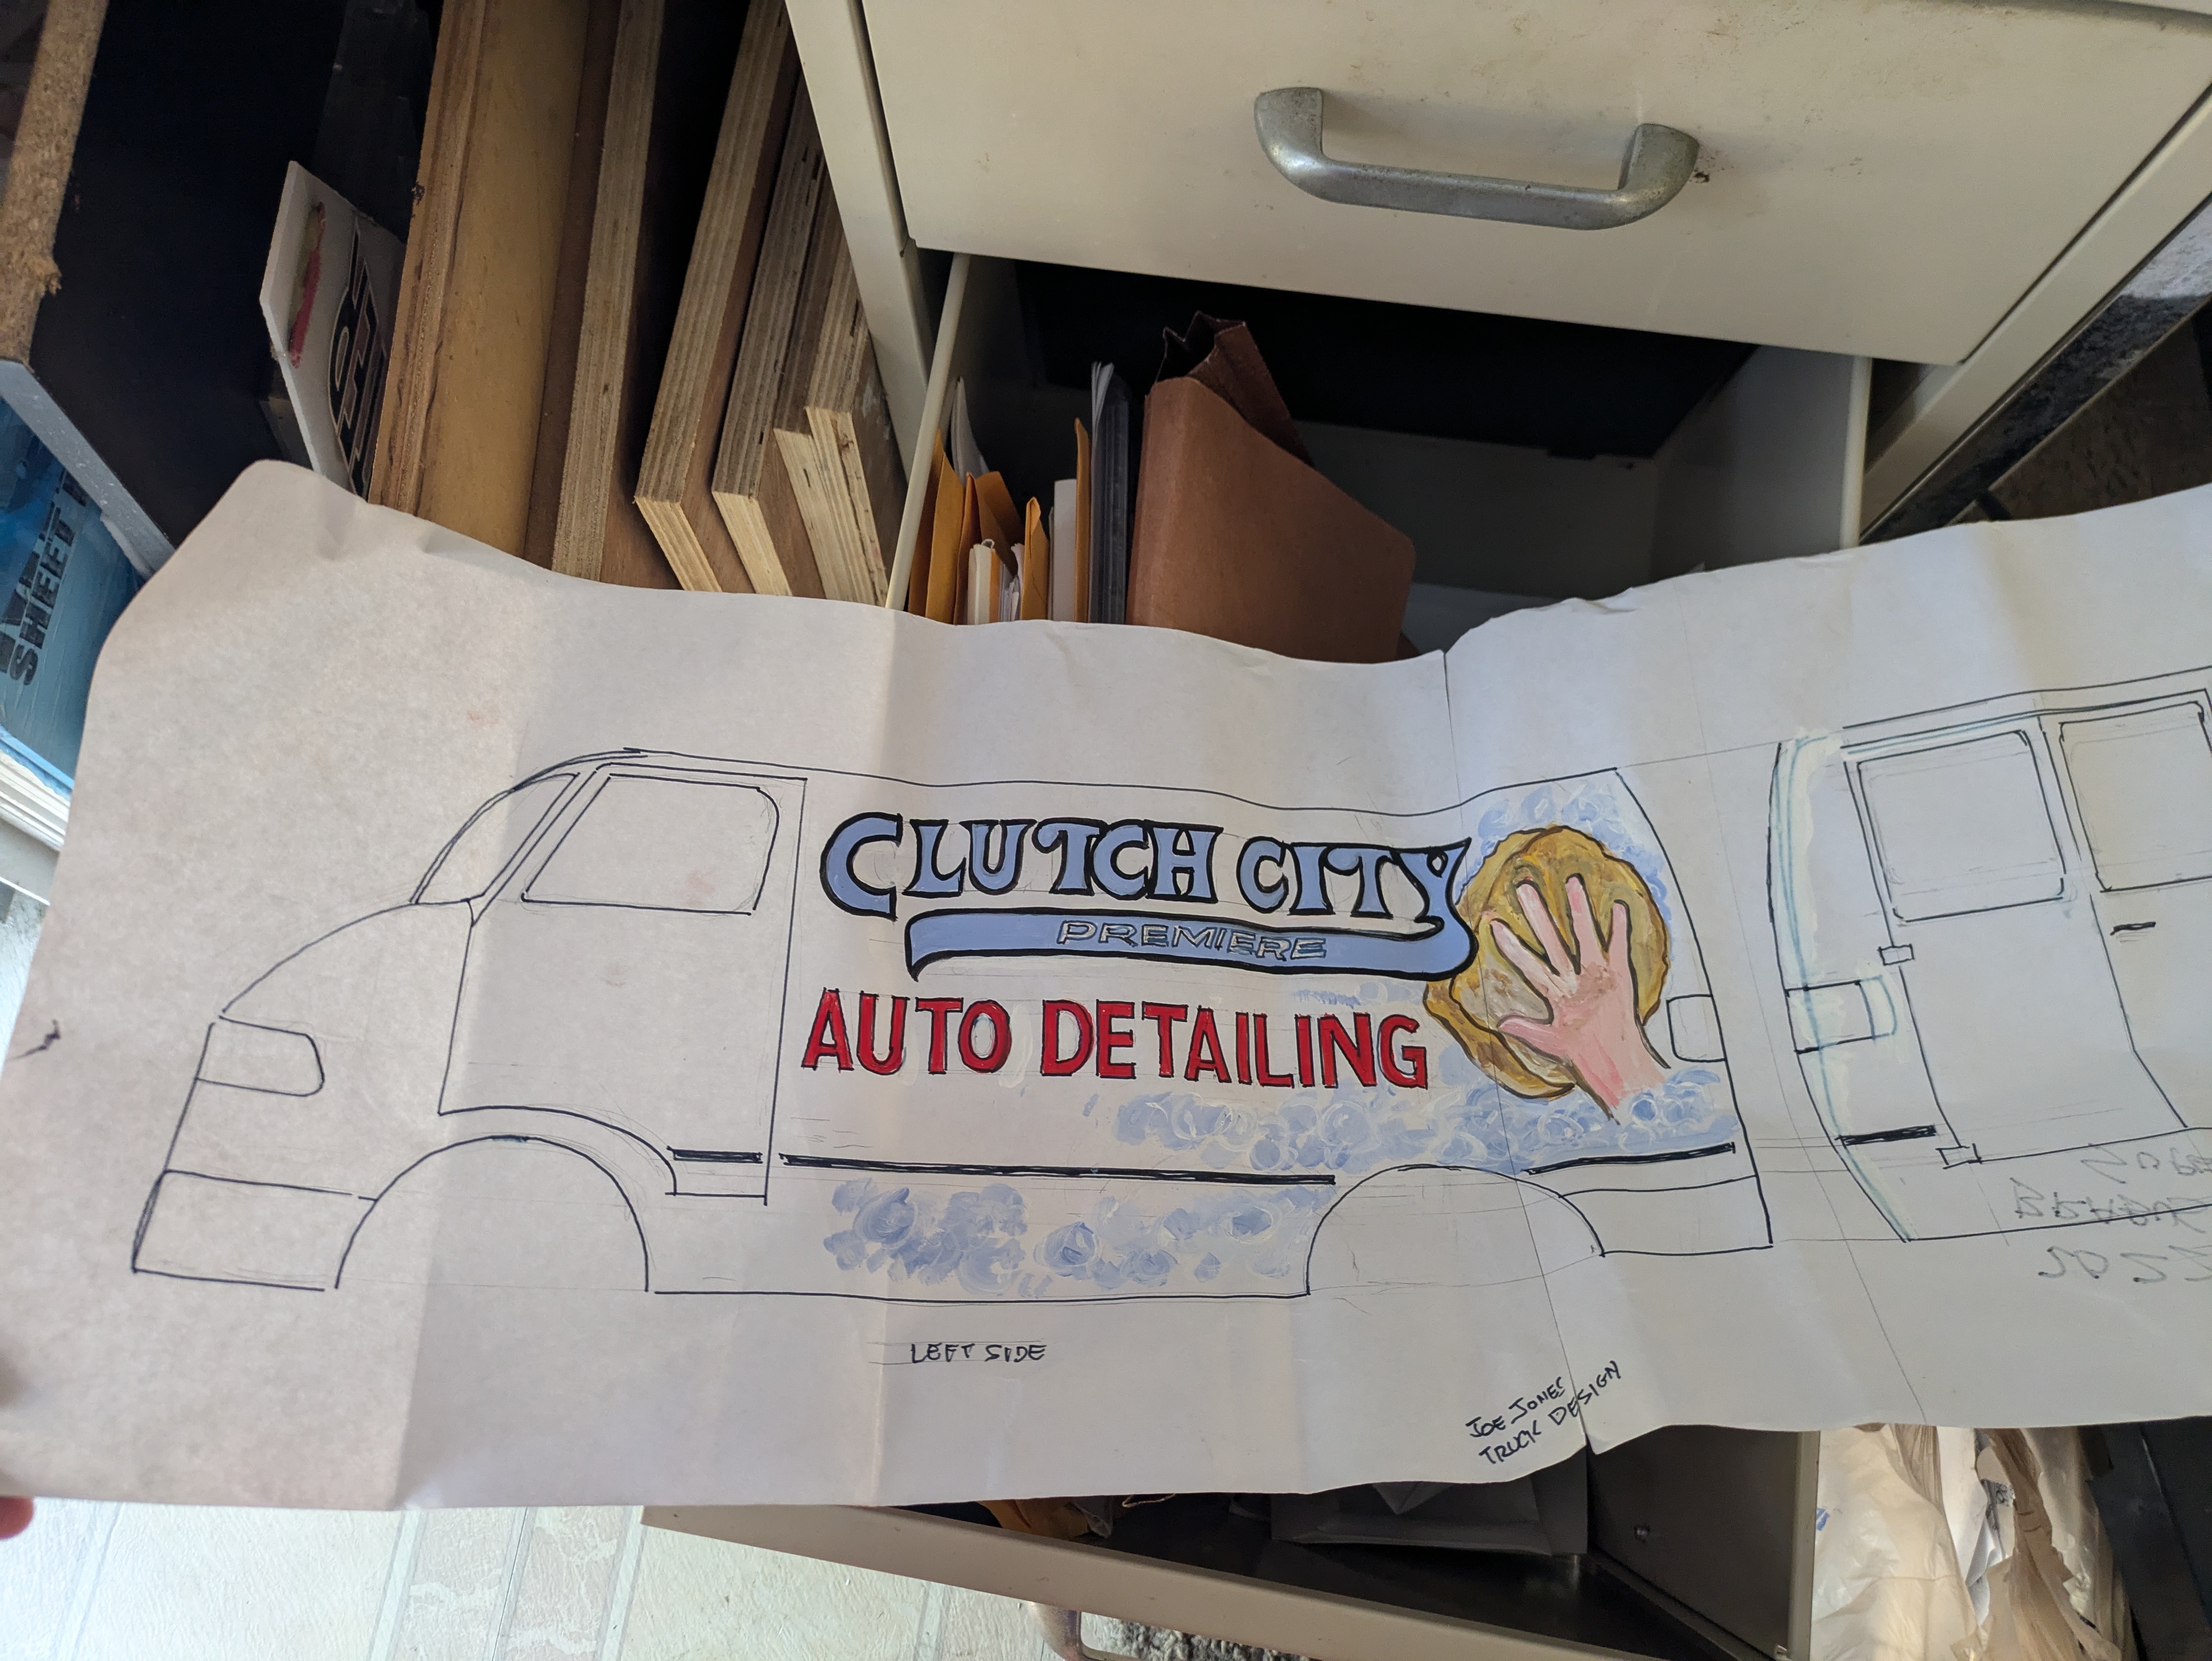 SHEET
CLUTCH CITY
PREMIERE
AUTO DETAILING
LEFT SIDE
JOE JONES
TRUCK DESIGN